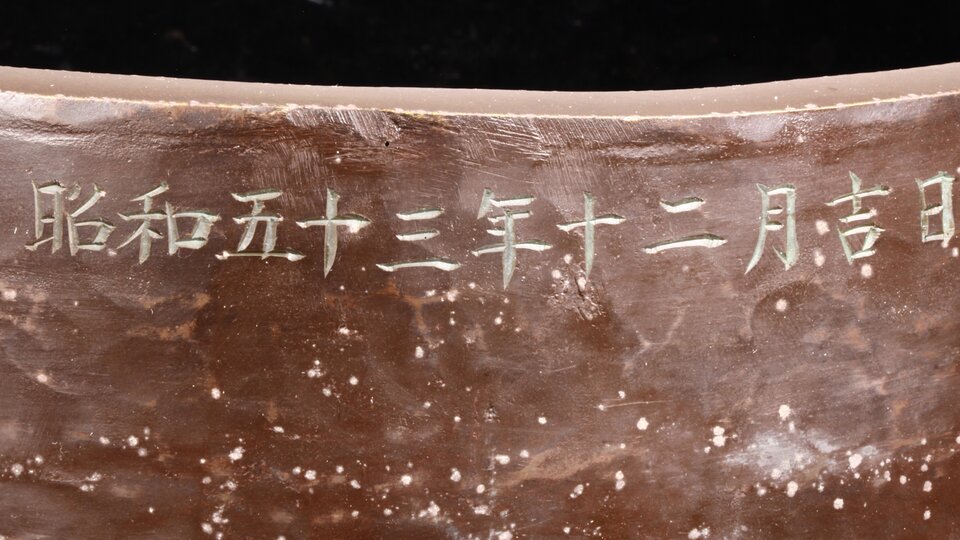 昭和五十三年十二月吉日